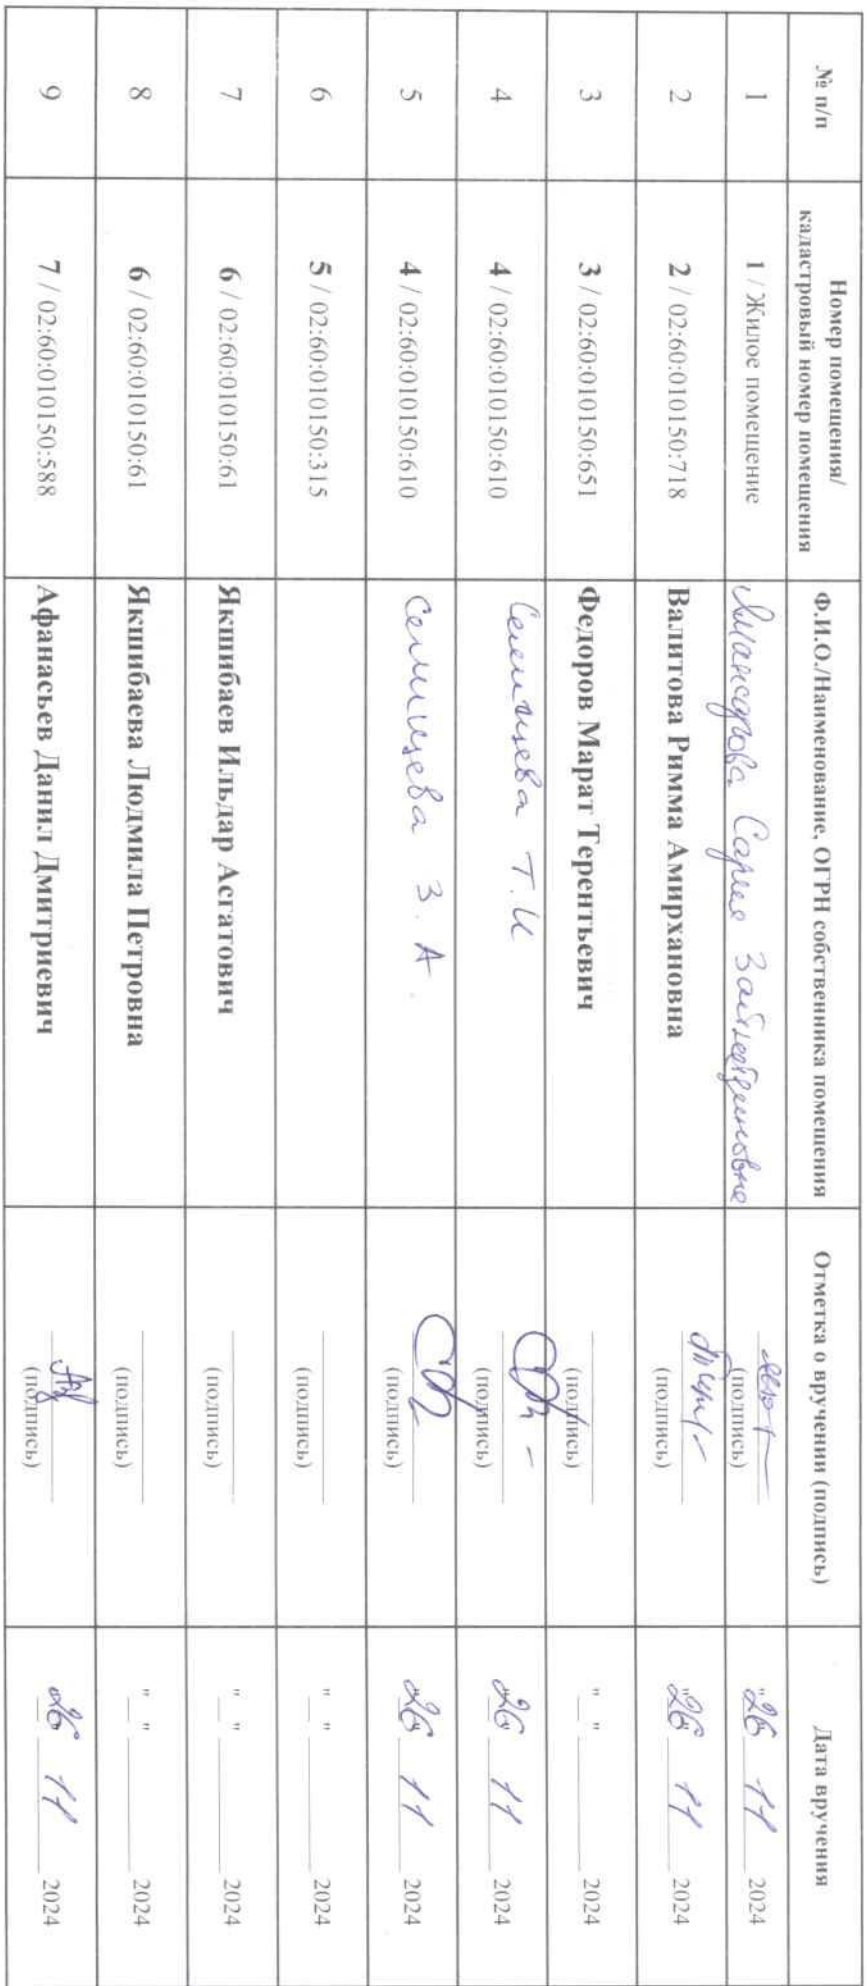 № п/п
Номер помещения/
кадастровый номер помещения
Ф.И.О./Наименование, ОГРН собственника помещения
Отметка о вручении (подпись)
Дата вручения
1
1 / Жилое помещение
Мансурова Сария
(подпись)
"26 11 2024
2
2 / 02:60:010150:718
Валитова Римма Амирхановна
(подпись)
"26 11 2024
3
3 / 02:60:010150:651
Федоров Марат Терентьевич
(подпись)
" " 2024
4
4 / 02:60:010150:610
Т. И
(подпись)
26 11 2024
5
4 / 02:60:010150:610
З. А.
(подпись)
26 11 2024
6
5 / 02:60:010150:315
(подпись)
" " 2024
7
6 / 02:60:010150:61
Якшибаев Ильдар Асгатович
(подпись)
" " 2024
8
6 / 02:60:010150:61
Якшибаева Людмила Петровна
(подпись)
" " 2024
9
7 / 02:60:010150:588
Афанасьев Данил Дмитриевич
(подпись)
26 11 2024